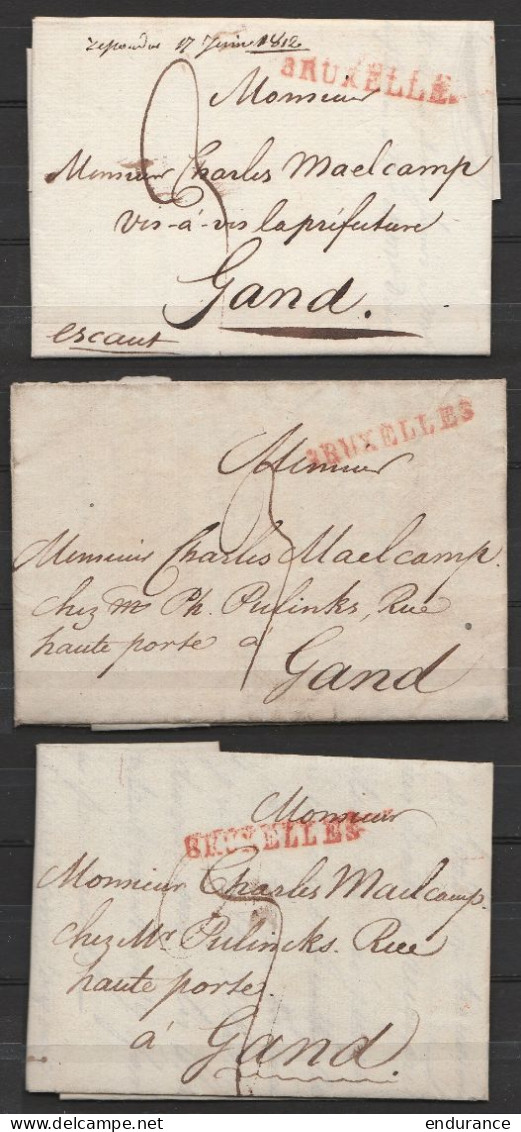 repondu 17 Juin 1812
BRUXELLES
Monsieur
Monsieur Charles Maelcamp
vis-à-vis la préfuture
Gand.
escaut
BRUXELLES
Monsieur
Monsieur Charles Maelcamp.
chez mr Ph. Pulinks, Rue
haute porte à
Gand
Monsieur
BRUXELLES
Monsieur Charles Maelcamp.
chez Mr Pulincks. Rue
haute porte.
à Gand.
delcampe.net
endurance